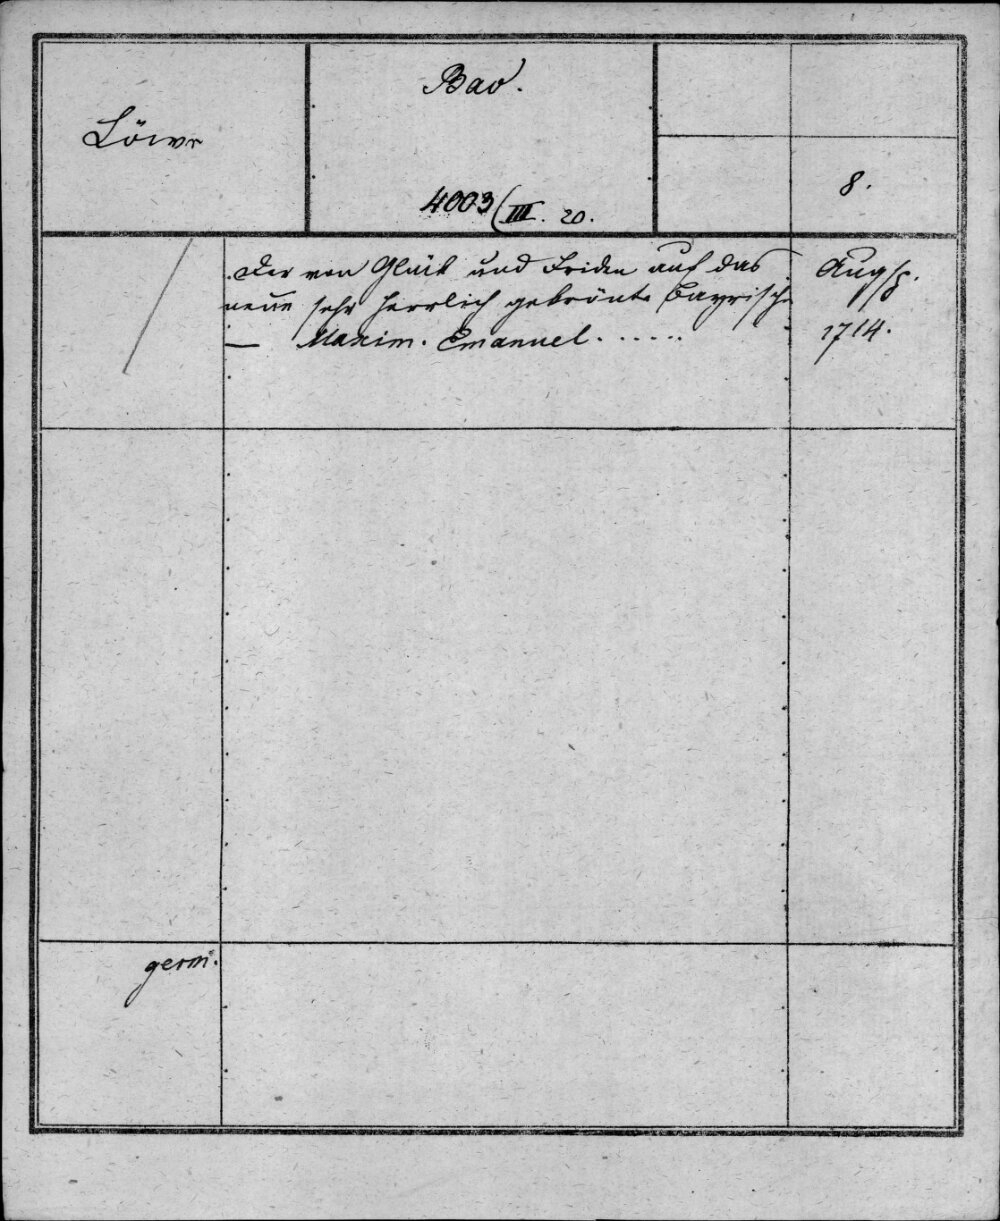 Löwe
Bav.
4003/III. 20.
8.
Der von Glück und Friden auf das
neue sehr herrlich gekrönte Bayrische
— Maxim. Emanuel......
Augsp.
1714.
germ.